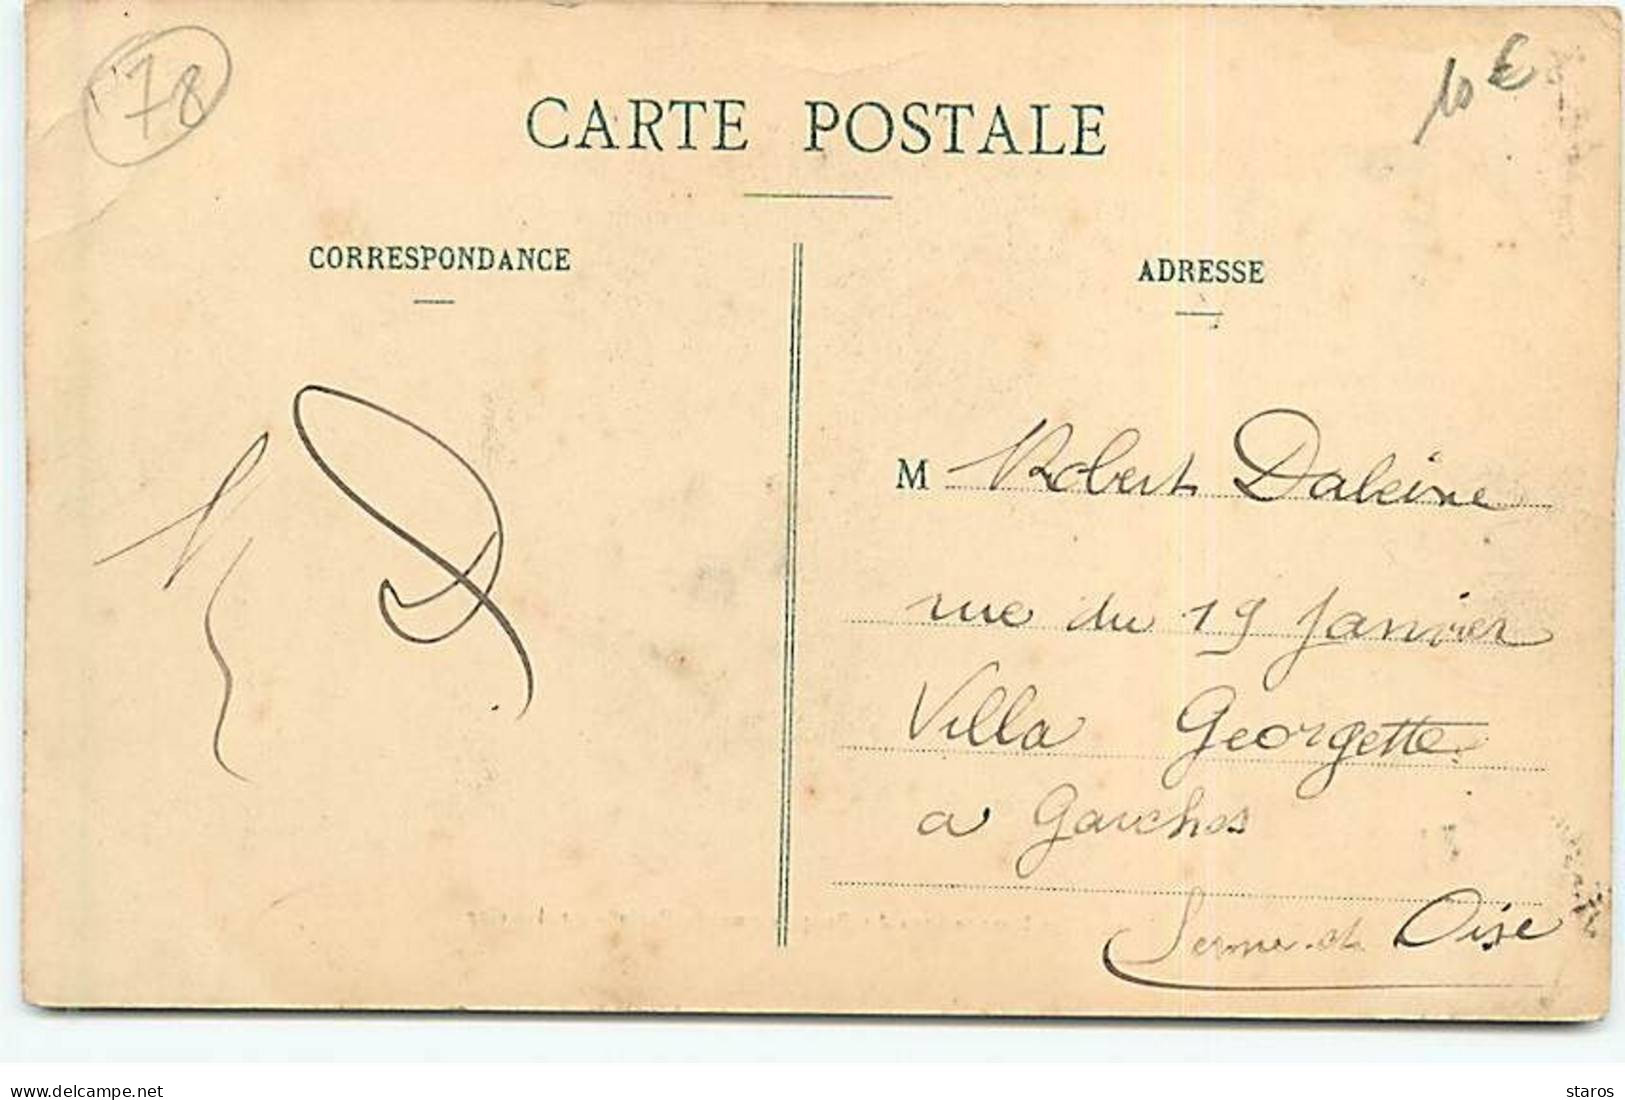 78
10 €
CARTE POSTALE
CORRESPONDANCE
ADRESSE
M Robert Daleine
rue du 19 Janvier
Villa Georgette
a Garches
Seine et Oise
delcampe.net
staros